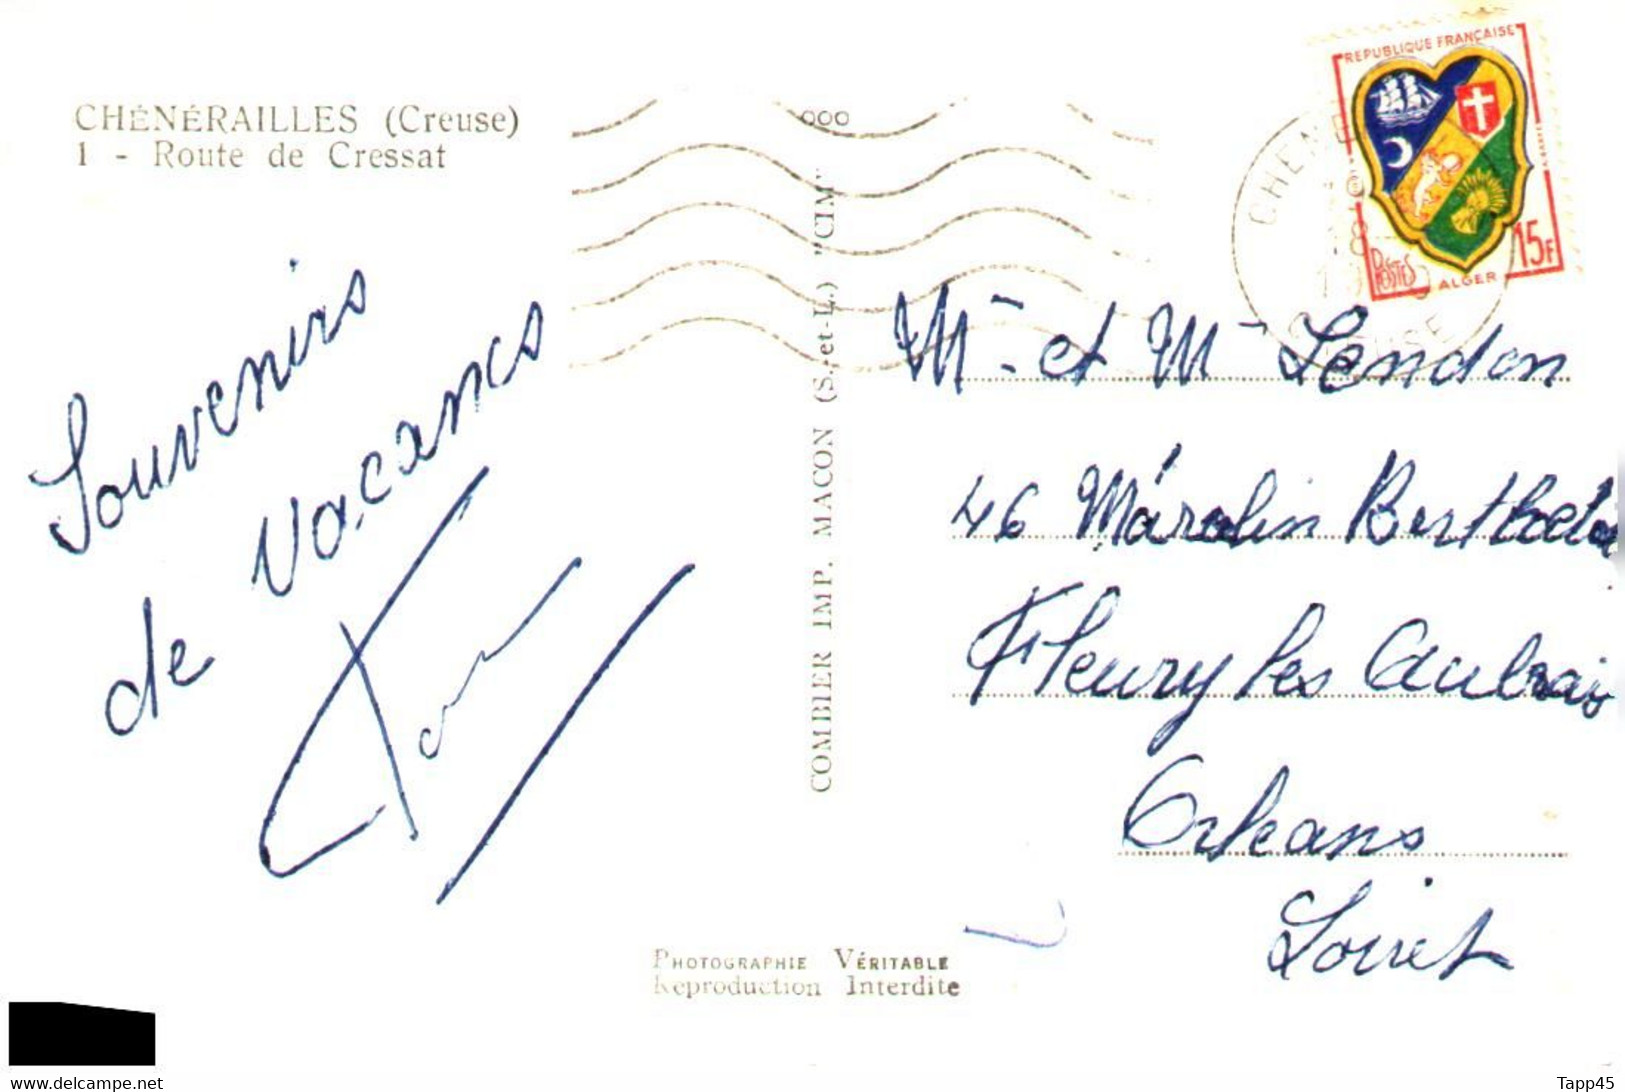 CHÉNÉRAILLES (Creuse)
1 - Route de Cressat
Souvenirs
de Vacances
COMBIER IMP. MACON (S.-et-L.) "CIM"
REPUBLIQUE FRANÇAISE
15F
POSTES
ALGER
Mr et Mme Lendon
46 Marcelin Berthelot
Fleury les Aubrais
Orleans
Loiret
PHOTOGRAPHIE VÉRITABLE
Reproduction Interdite
www.delcampe.net
Tapp45